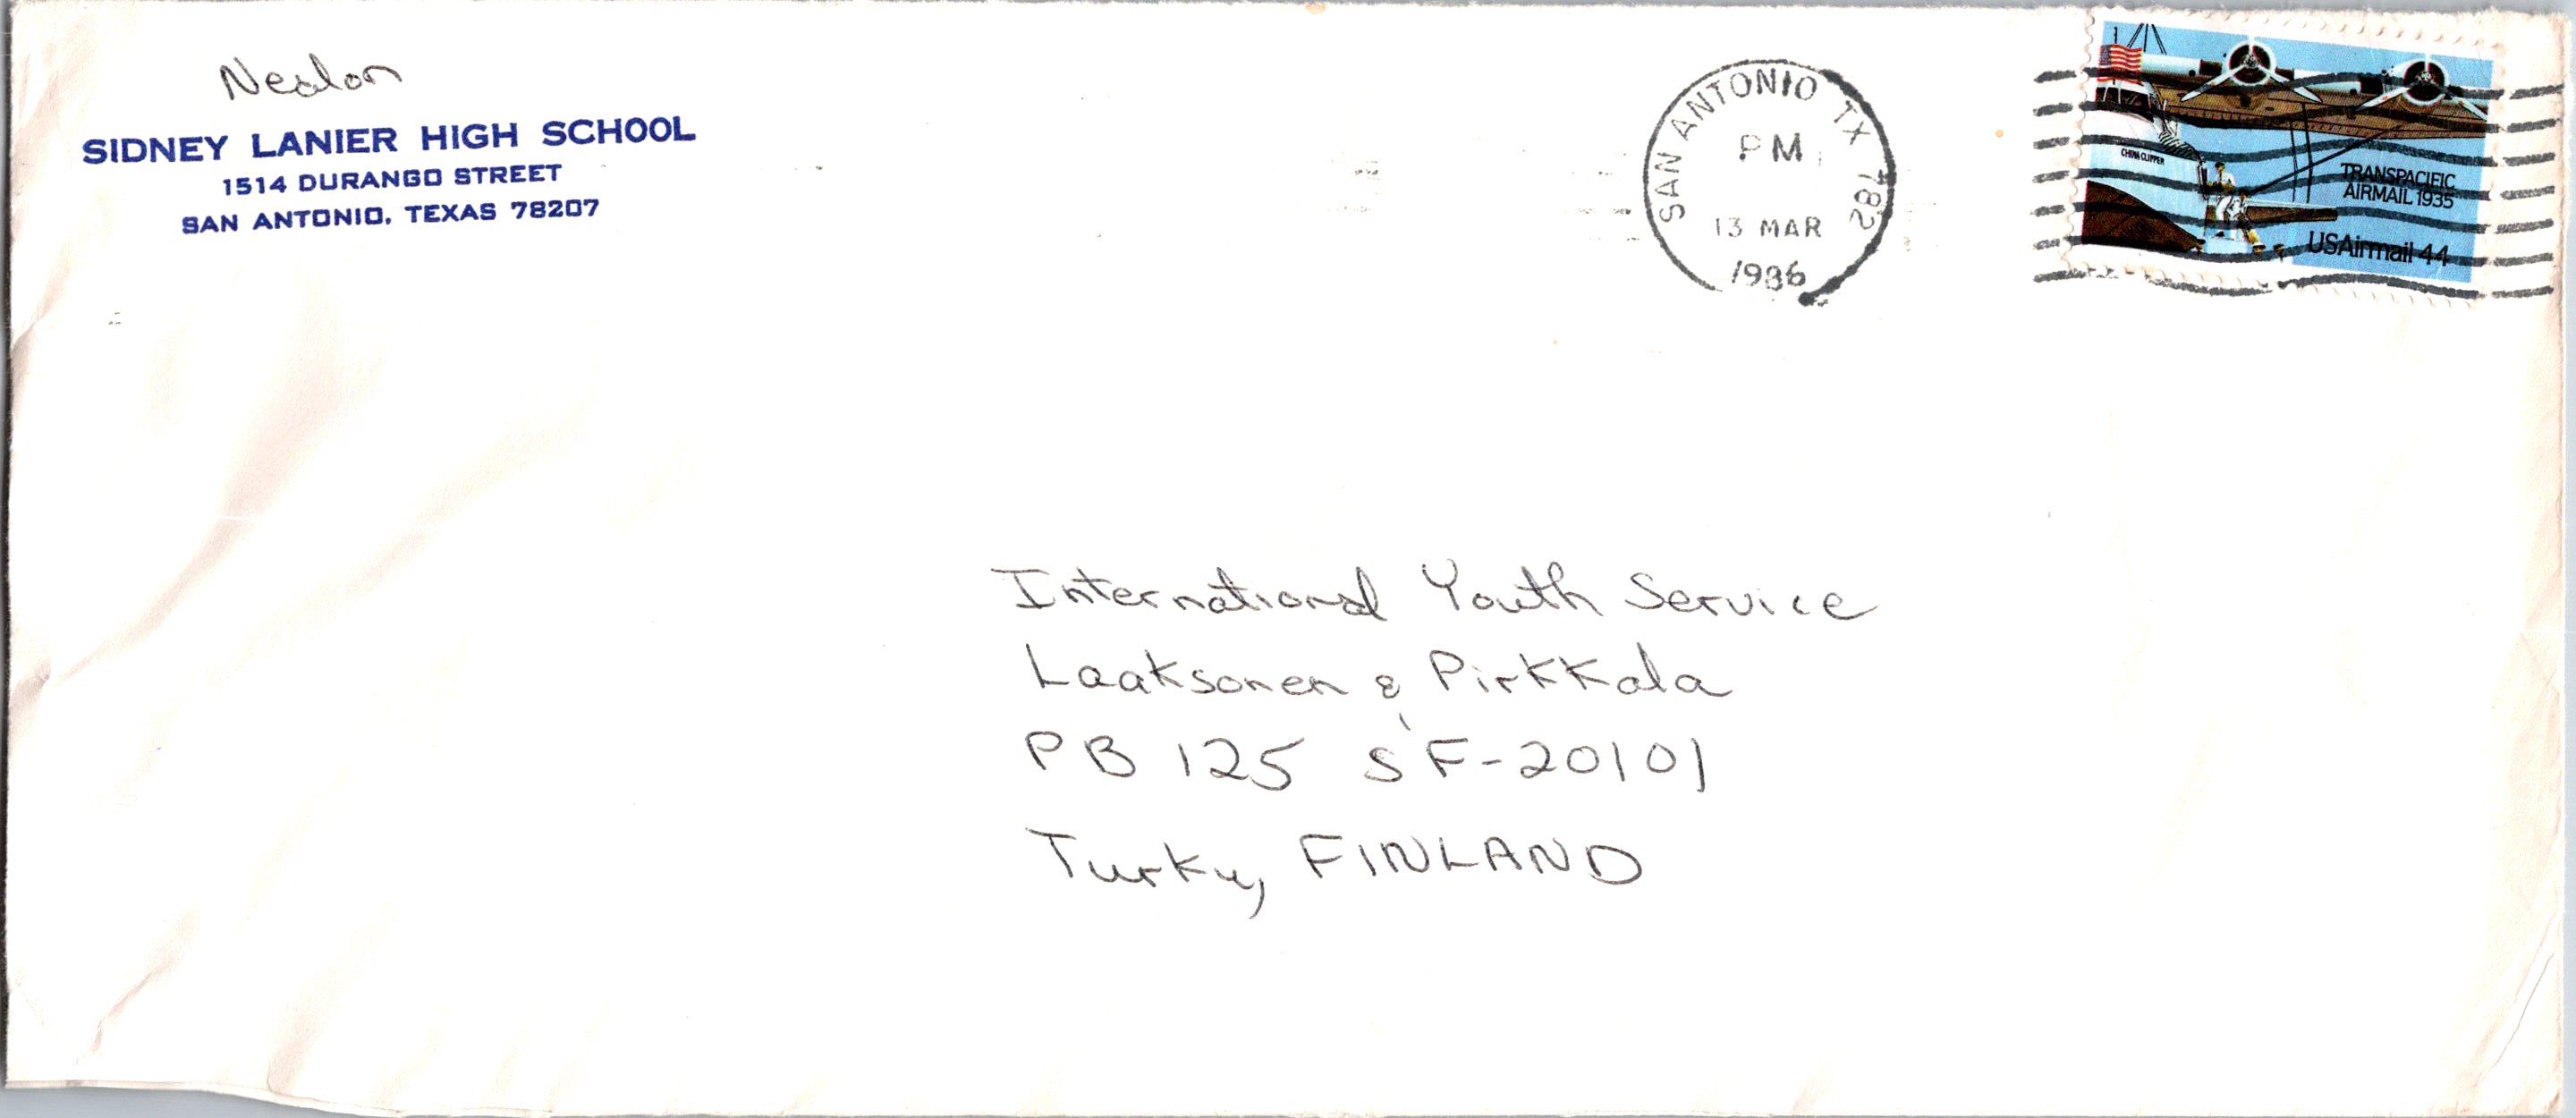 Nealon
SIDNEY LANIER HIGH SCHOOL
1514 DURANGO STREET
SAN ANTONIO, TEXAS 78207
SAN ANTONIO TX 782
PM
13 MAR
1986
CHINA CLIPPER
TRANSPACIFIC
AIRMAIL 1935
USAirmail 44
International Youth Service
Laaksonen & Pirkkala
PB 125 SF-20101
Turku, FINLAND